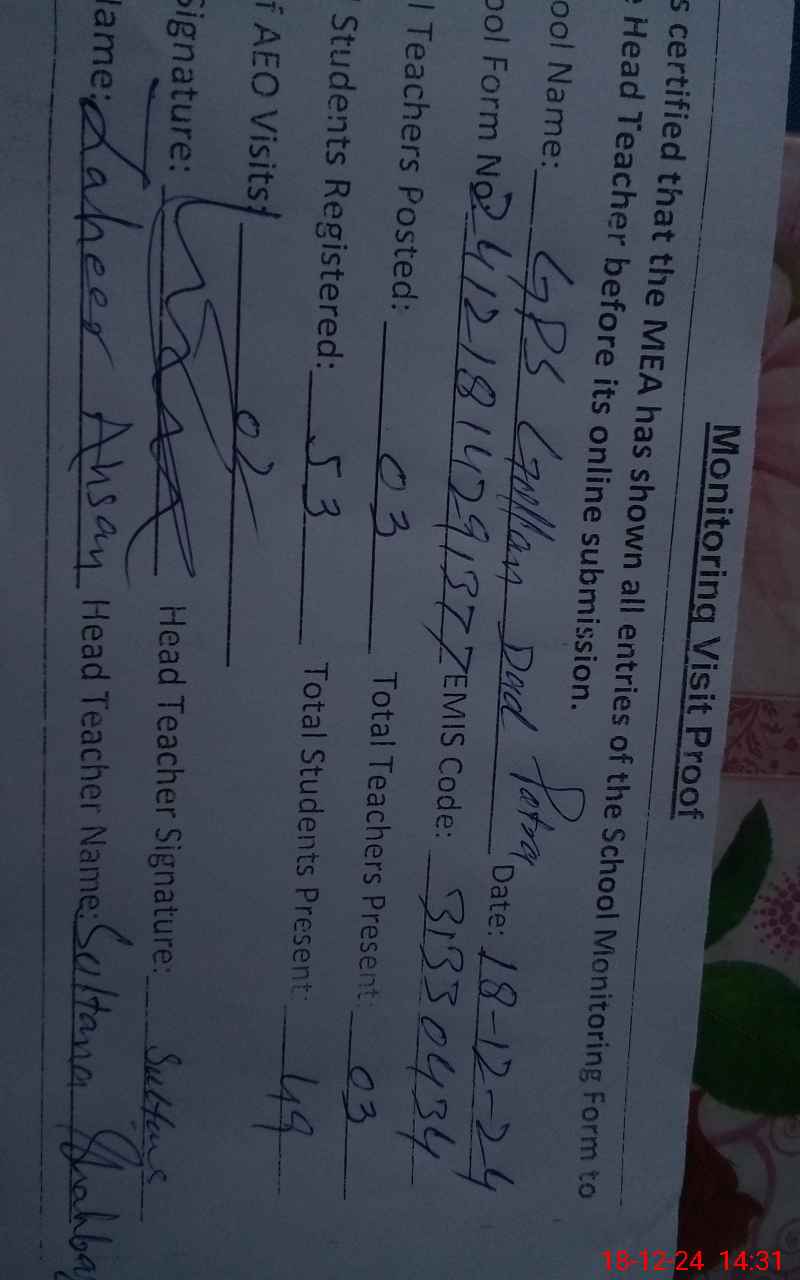 Monitoring Visit Proof
s certified that the MEA has shown all entries of the School Monitoring Form to
e Head Teacher before its online submission.
ool Name: GPS Gullan Dad Date: 18-12-24
ool Form No 24121814291377 EMIS Code: 31330434
l Teachers Posted: 03 Total Teachers Present: 03
Students Registered: 53 Total Students Present: 49
f AEO Visits: 02
Signature: Head Teacher Signature: Sultana
Name: Zaheer Ahsan Head Teacher Name: Sultana Shahba
18-12-24 14:31